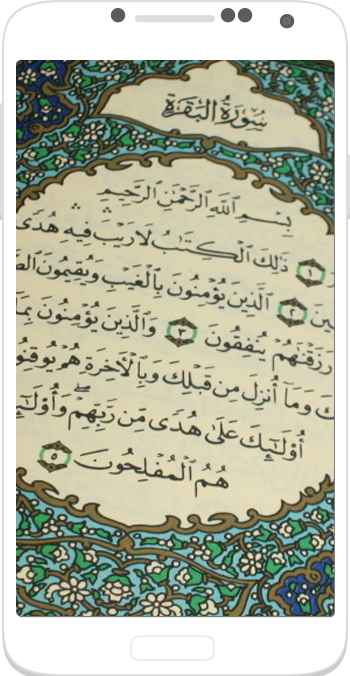 سُورَةُ البَقَرَةِ
بِسْمِ ٱللَّهِ ٱلرَّحْمَٰنِ ٱلرَّحِيمِ
١ ذَٰلِكَ ٱلْكِتَٰبُ لَا رَيْبَ فِيهِ هُدًى
٢ ٱلَّذِينَ يُؤْمِنُونَ بِٱلْغَيْبِ وَيُقِيمُونَ
رَزَقْنَٰهُمْ يُنفِقُونَ ٣ وَٱلَّذِينَ يُؤْمِنُونَ بِمَا
وَمَآ أُنزِلَ مِن قَبْلِكَ وَبِٱلْأَخِرَةِ هُمْ يُوقِنُو
أُوْلَٰٓئِكَ عَلَىٰ هُدًى مِّن رَّبِّهِمْ ۖ وَأُوْلَٰٓئِ
هُمُ ٱلْمُفْلِحُونَ ٥